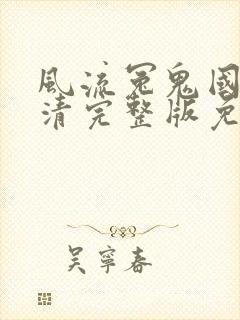 風流冤鬼國
清完整版免
吴寧春